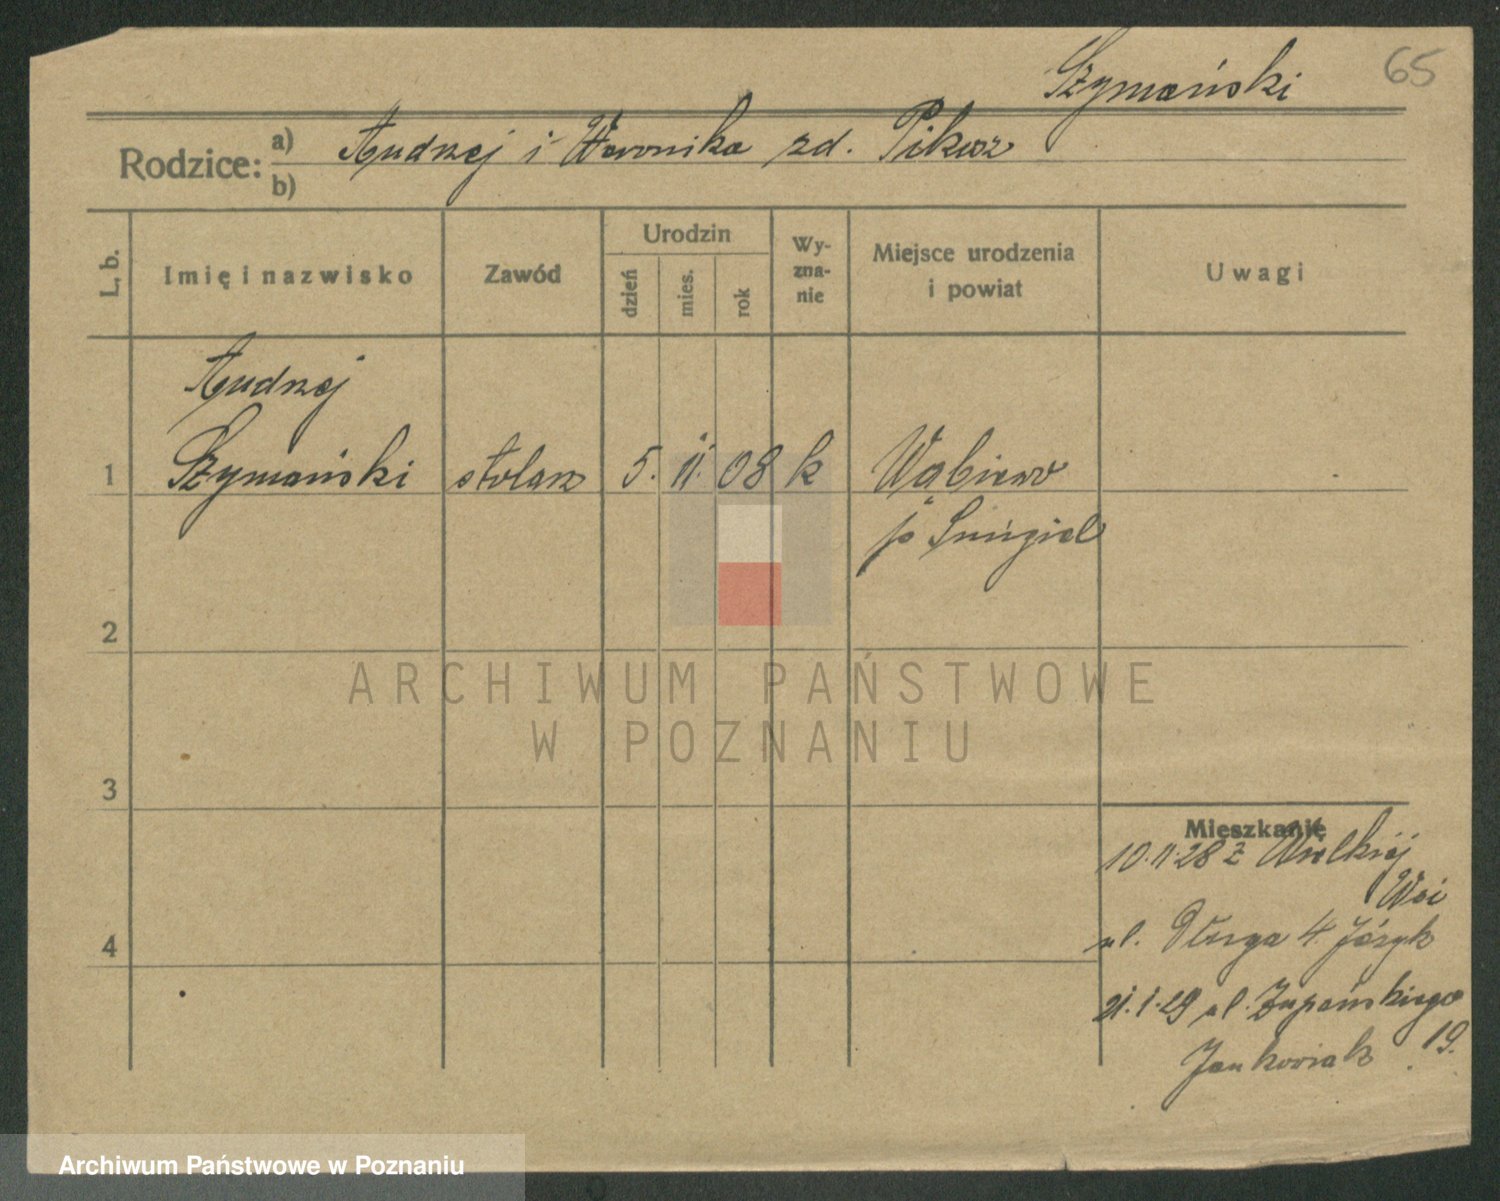 Szymański 65
Rodzice: a) Andrzej i Weronika zd. Pikosz
b)
L. b. Imię i nazwisko Zawód Urodzin dzień mies. rok Wy-zna-nie Miejsce urodzenia i powiat Uwagi
Andrzej
1 Szymański stolarz 5. 11. 08 k Wabiewo
p. Śmigiel
2
ARCHIWUM PAŃSTWOWE
W POZNANIU
3
Mieszkanie
10.11.28 z Wielkiej
Wsi
4 ul. Długa 4. Józyk
21.1.29 ul. Żupańskiego
Jankowiak 19.
Archiwum Państwowe w Poznaniu